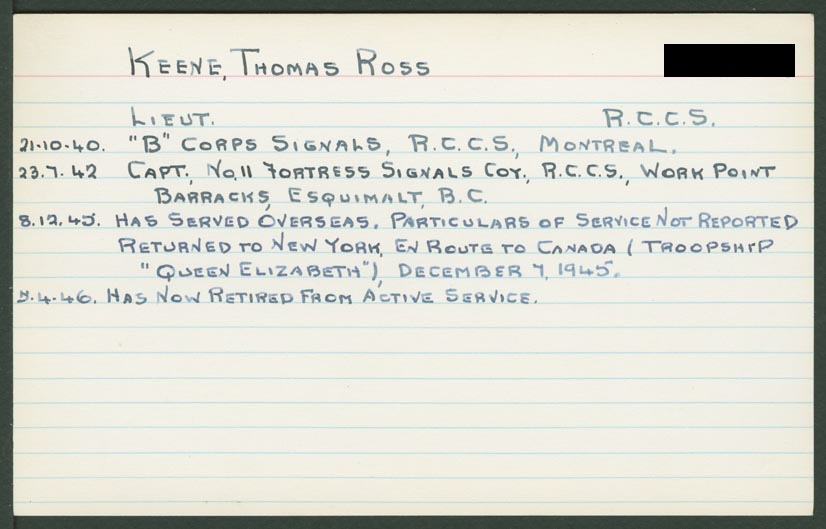 KEENE, THOMAS ROSS
LIEUT. R.C.C.S.
21.10.40. "B" CORPS SIGNALS, R.C.C.S., MONTREAL.
23.7.42 CAPT., NO.11 FORTRESS SIGNALS COY., R.C.C.S., WORK POINT
BARRACKS, ESQUIMALT, B.C.
8.12.45. HAS SERVED OVERSEAS. PARTICULARS OF SERVICE NOT REPORTED
RETURNED TO NEW YORK, EN ROUTE TO CANADA (TROOPSHIP
"QUEEN ELIZABETH"), DECEMBER 7, 1945.
.4.46. HAS NOW RETIRED FROM ACTIVE SERVICE.